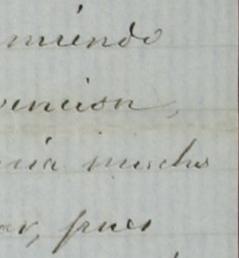 miendo
vencion,
ria mucho
ar, pues